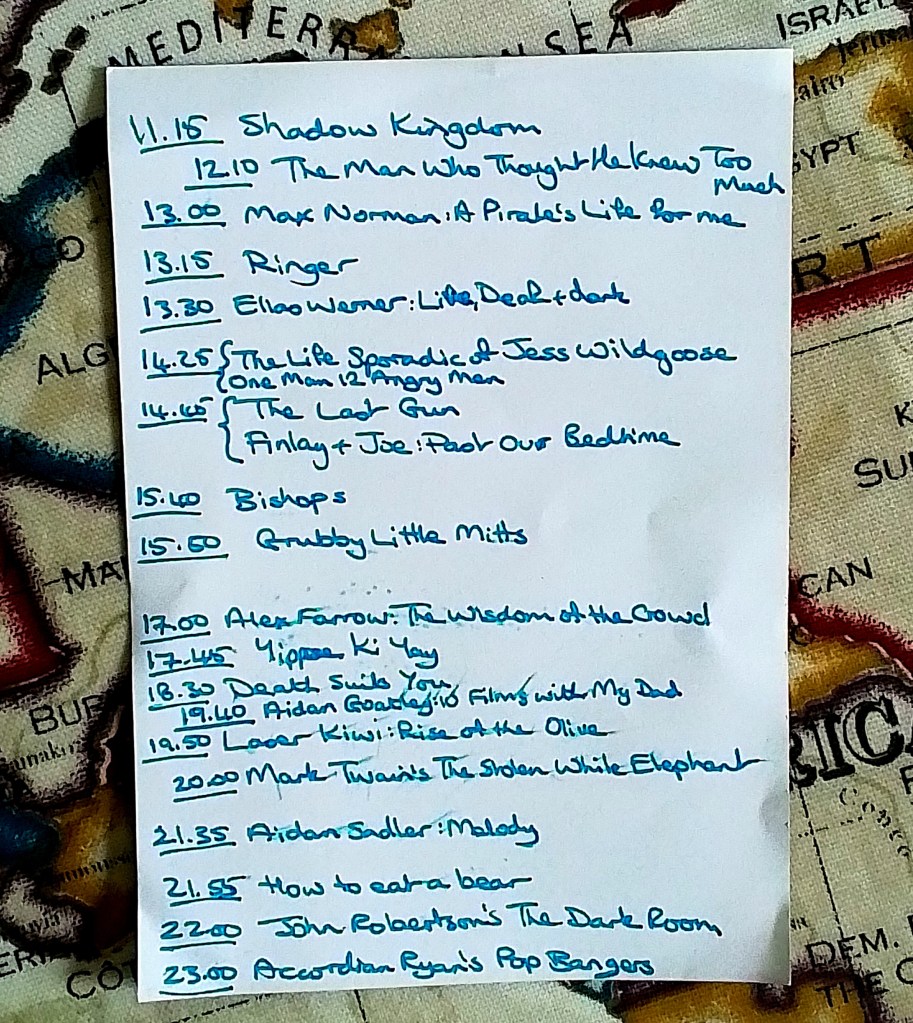 MEDITERRA
N SEA
ISRAEL
Jerusa
Cairo
GYPT
ALG
RT
MA
CAN
SU
BUR
RICA
DEM.
THE C
CÔ
11.15 Shadow Kingdom
12.10 The Man Who Thought He Knew Too
Much
13.00 Max Norman: A Pirate's Life for me
13.15 Ringer
13.30 Ellao Werner: Life, Death + dark
14.25 The Life Sporadic of Jess Wildgoose
One Man 12 Angry Men
14.45 The Last Gun
Finlay + Joe: Past Our Bedtime
15.40 Bishops
15.50 Grubby Little Mitts
17.00 Alex Farrow: The Wisdom of the Crowd
17.45 Yippee Ki Yay
18.30 Death Suits You
19.40 Aidan Goatley: 10 Films with My Dad
19.50 Laser Kiwi: Rise of the Olive
20.00 Mark Twain's The Stolen White Elephant
21.35 Aidan Sadler: Melody
21.55 How to eat a bear
22.00 John Robertson's The Dark Room
23.00 Accordian Ryan's Pop Bangers